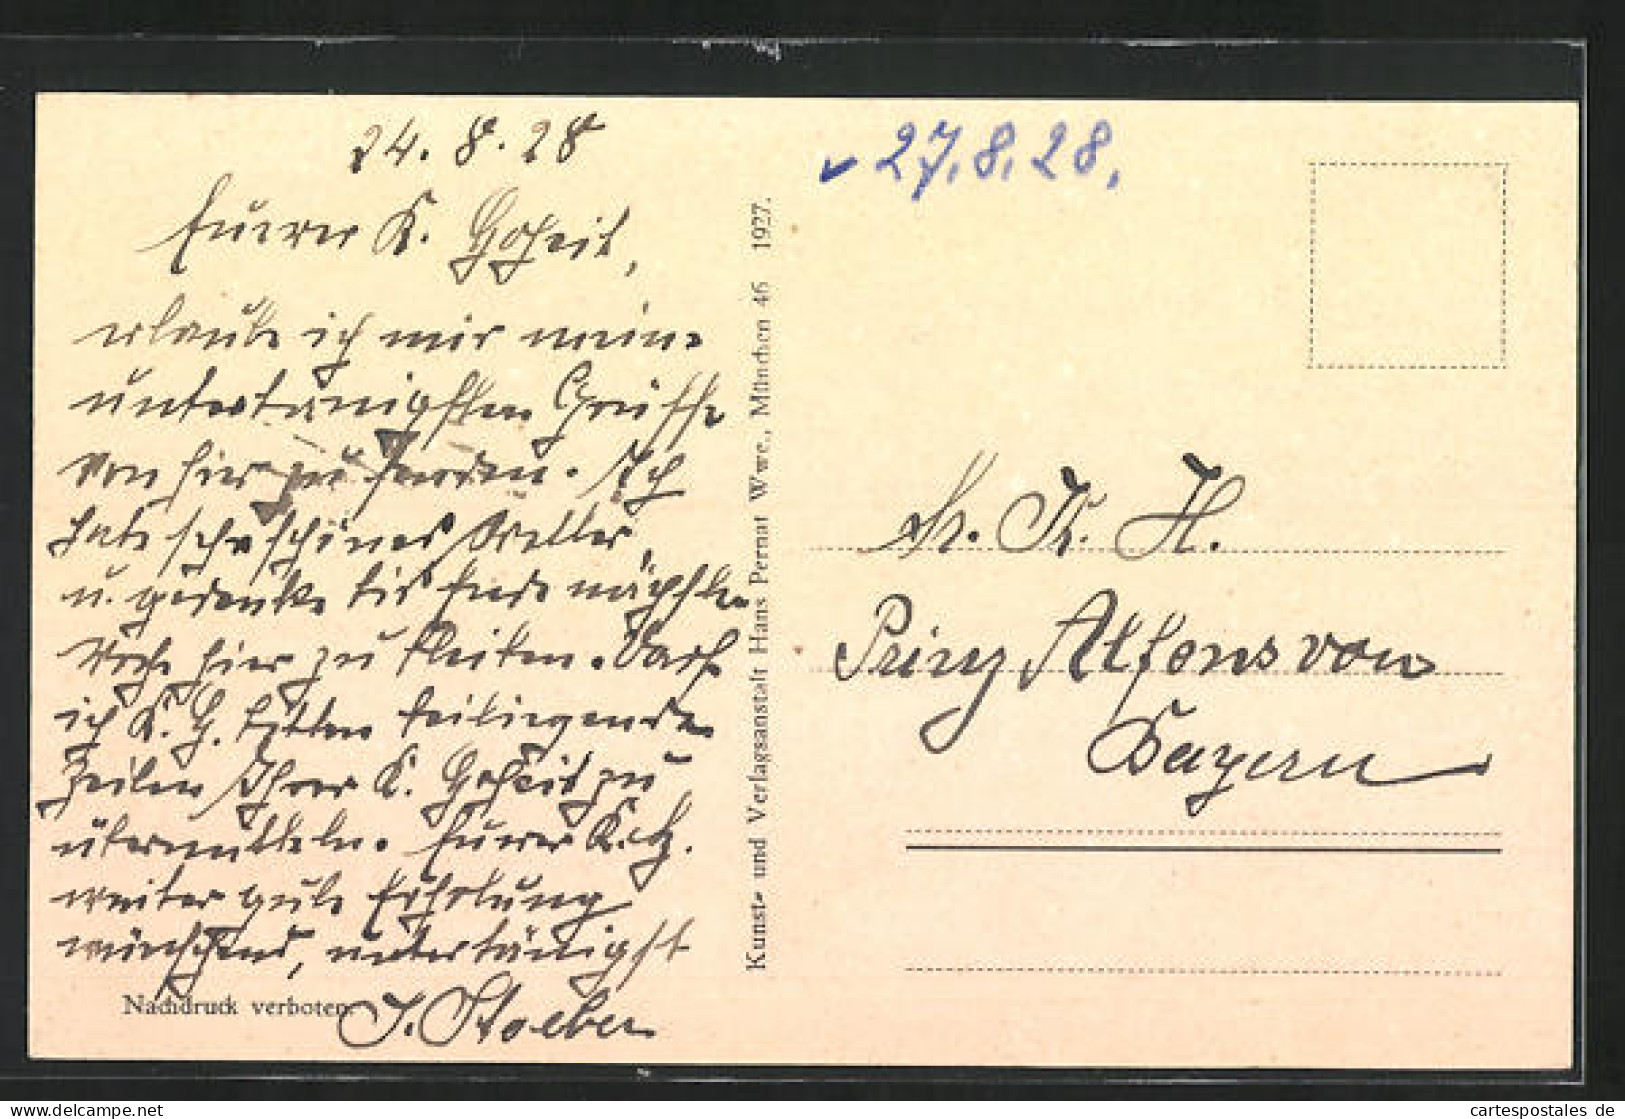 24.8.28
Eurer K. Hoheit,
erlaube ich mir meine
untertänigsten Grüsse
von hier zu senden. Ich
habe sehr schönes Wetter,
u. gedenke bis Ende nächster
Woche hier zu bleiben. Darf
ich K. H. bitten beiliegende
Zeilen Ihrer K. Hoheit zu
übermitteln. Eurer K. H.
weiter gute Erholung
wünschend, untertänigst
J. Stoeber
Nachdruck verboten.
Kunst- und Verlagsanstalt Hans Pernat Wwe., München 46 1927.
27.8.28.
Sr. K. H.
Prinz Alfons von
Bayern
www.cartespostales.de
cartespostales de